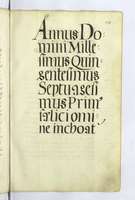 Annus Do
mini Mille
simus Quin
sentesimus
Septuagesi
mus Prim⁹
fælici omi
ne inchoat